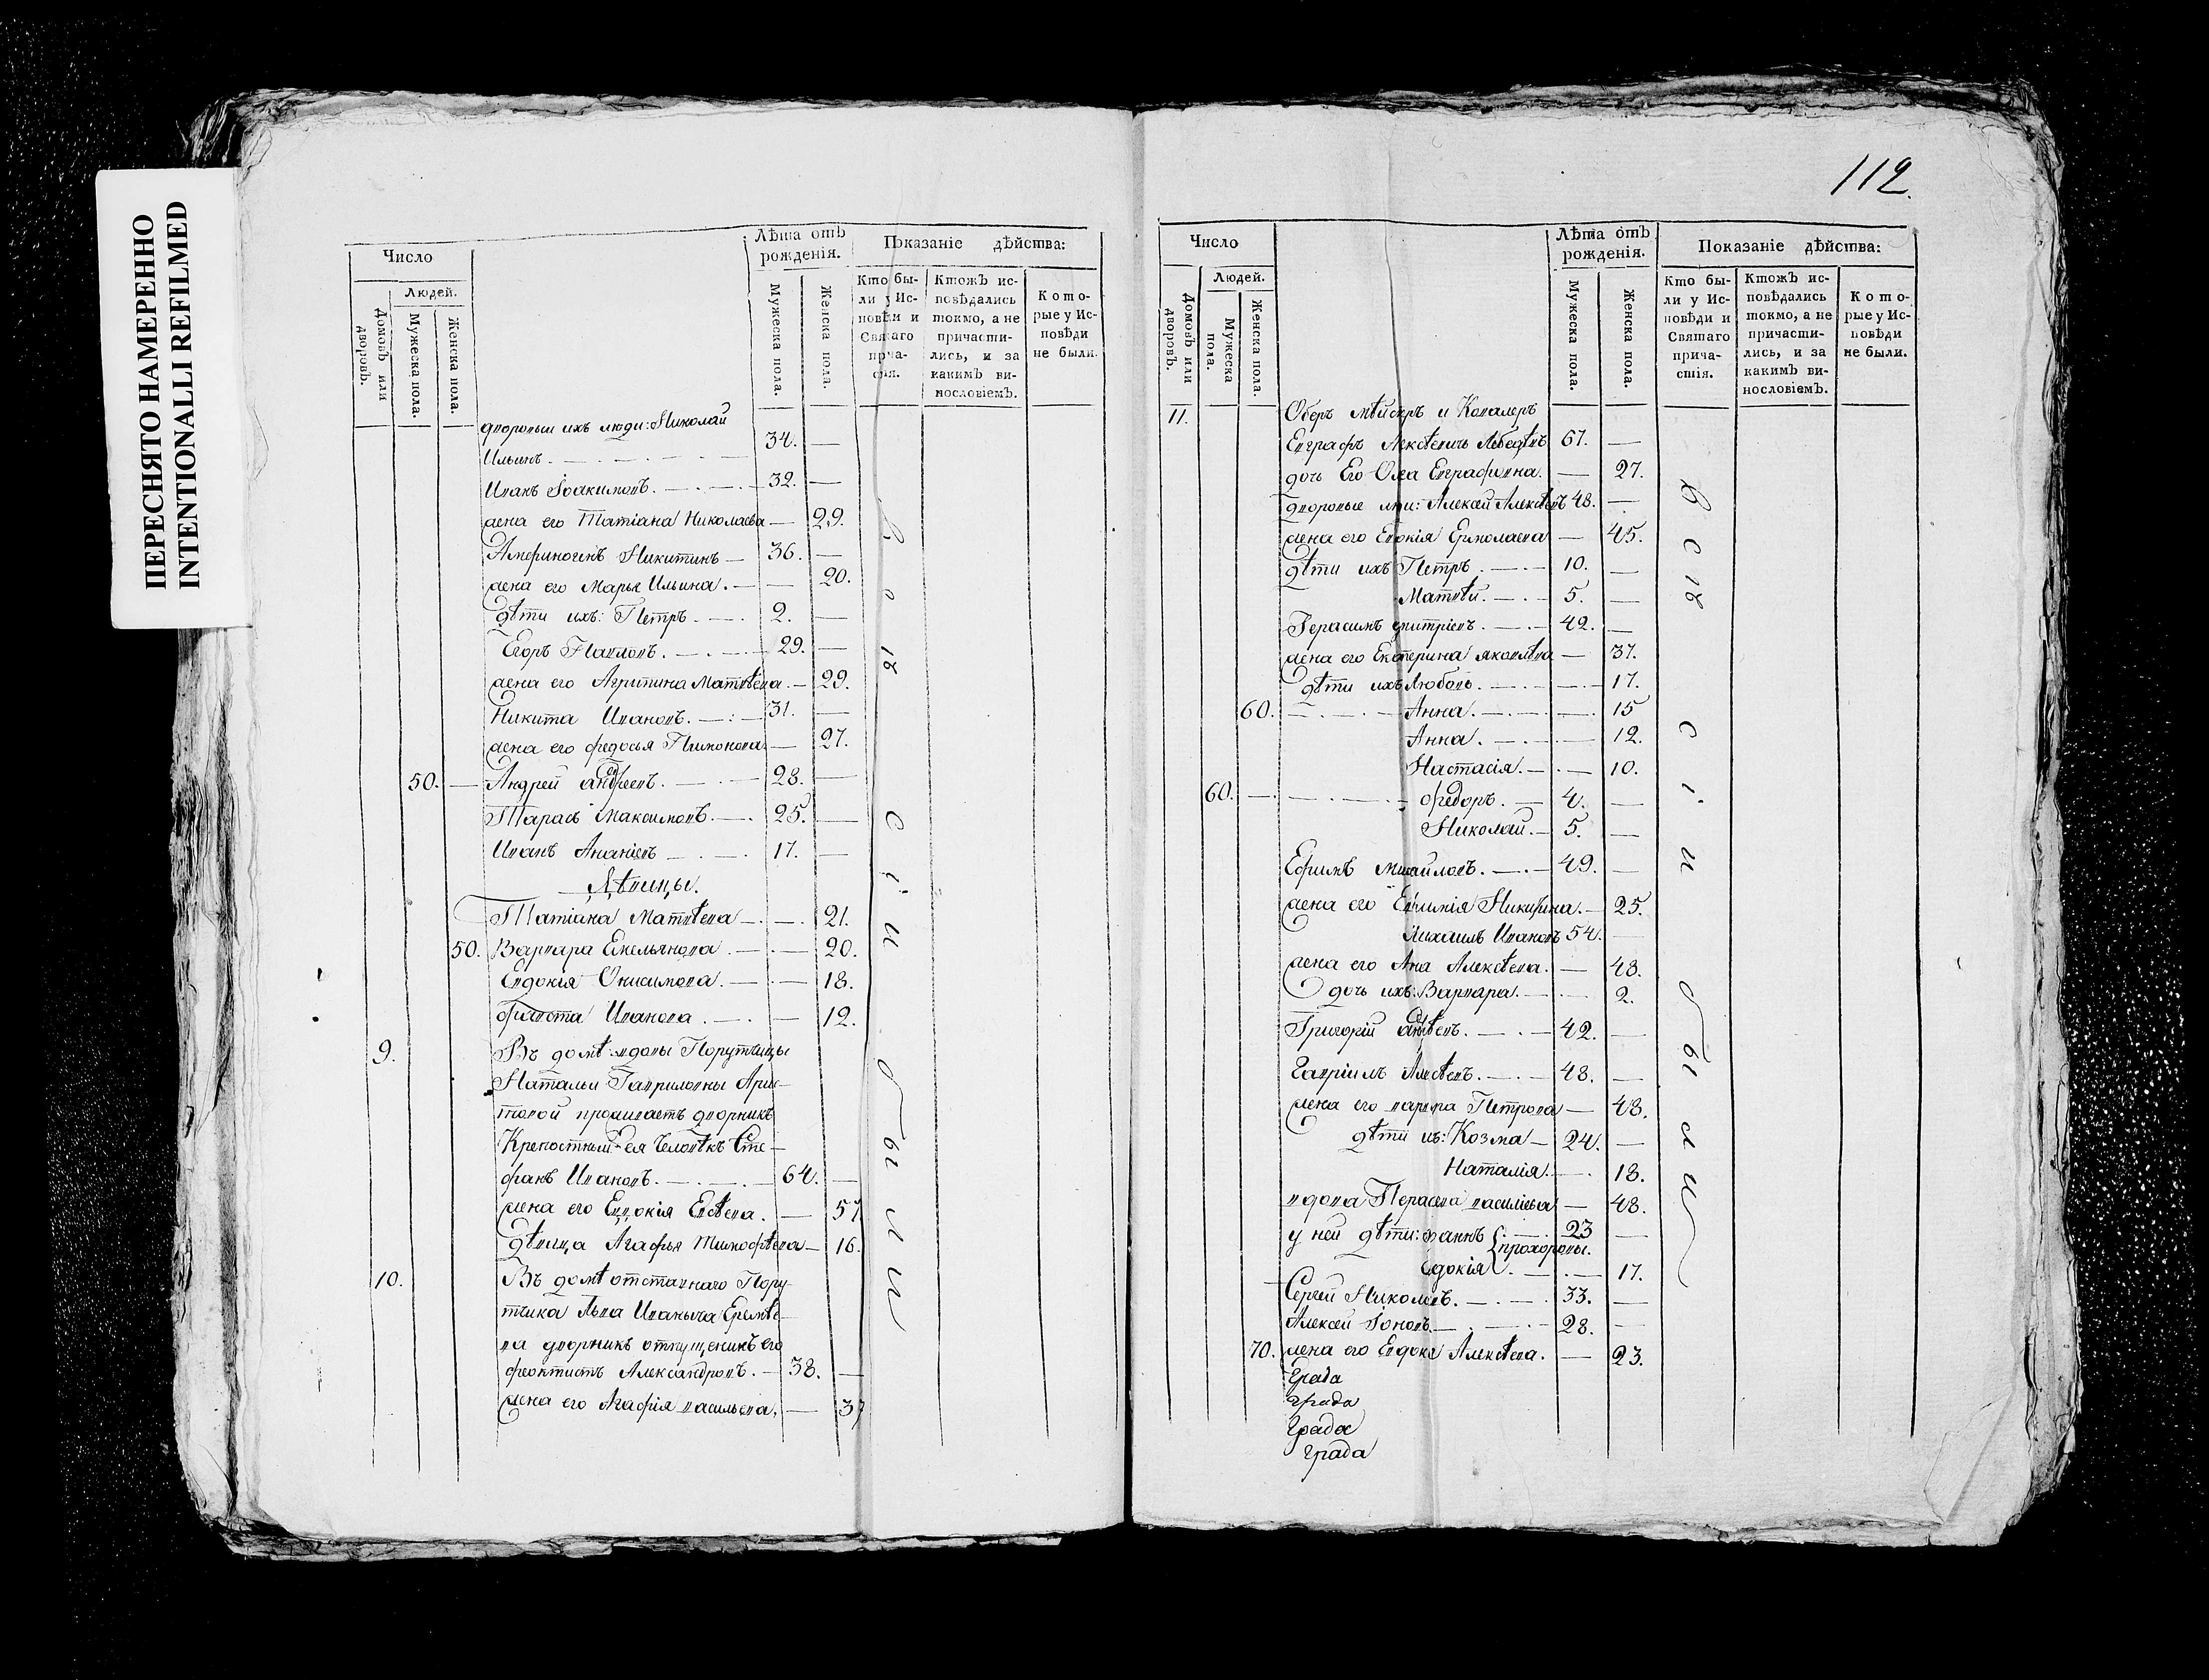 ПЕРЕСНЯТО НАМЕРЕННО
INTENTIONALLI REFILMED
Число
Людей.
Домовъ или дворовъ.
Мужеска пола.
Женска пола.
Лѣта отъ рожденія.
Мужеска пола.
Женска пола.
Показаніе дѣйства:
Кто были у Исповѣди и Святаго прича-
стія.
Ктожъ исповѣдались токмо, а не причастились, и за какимъ винословіемъ.
Которые у Исповѣди не были.
дворовыи ихъ люди: Николай
Ильинъ. 34. —
Иванъ Іоакимовъ. 32. —
жена его Татіана Николаева — 29.
Амфиногенъ Никитинъ — 36. —
жена его Марья Ильина. — 20.
дѣти ихъ: Петръ. 2. —
Егоръ Павловъ. 29. —
жена его Агрипина Матвѣева. — 29.
Никита Ивановъ. 31. —
жена его федосья Пимонова — 27.
50. — Андрей андреевъ. 28. —
Тарасъ Максимовъ. 25. —
Иванъ Ананіевъ 17. —
Дѣвицы.
Татіана Матвѣева — 21.
50. Варвара Емельянова — 20.
Евдокія Онисимова. — 18.
Иванова. — 12.
9. Въ домѣ вдовы Порутчицы
Натальи Гавриловны
проживаетъ дворникъ
Крепостный ея Человѣкъ Сте-
фанъ Ивановъ. 64. —
жена его Евдокія Евсѣева. — 57
дѣвица Агафья Тимофѣева — 16.
10. Въ домѣ отставнаго Пору-
тчика Льва Иваныча Еремѣе-
ва дворникъ отпущеникъ его
феоктистъ Александровъ. 38. —
жена его Агафія васильева. — 37
Всѣ сіи были
112.
Число
Людей.
Домовъ или дворовъ.
Мужеска пола.
Женска пола.
Лѣта отъ рожденія.
Мужеска пола.
Женска пола.
Показаніе дѣйства:
Кто были у Исповѣди и Святаго прича-
стія.
Ктожъ исповѣдались токмо, а не причастились, и за какимъ винословіемъ.
Которые у Исповѣди не были.
11. Оберъ и Кавалеръ
Евграфъ Алексѣевичь Лебедевъ 67. —
дочь Его Евграфовна. — 27.
дворовые люи: Алексей Алексѣевъ 48. —
жена его Евокія Ермолаева — 45.
дѣти ихъ Петръ. 10. —
Матвѣй. 5. —
Герасимъ дмитріевъ. 42. —
жена его Екатерина яковлева — 37.
дѣти ихъ Любовь. — 17.
60. Анна. — 15
Анна. — 12.
Настасія. — 10.
60. — федоръ. 4. —
Николай. 5. —
Ефимъ михайловъ. 49. —
жена его Никифовна. — 25.
Михаилъ Ивановъ 54. —
жена его Ана Алексѣева. — 48.
дочь ихъ: Варвара. — 2.
Григорій 42. —
Гавріилъ 48. —
жена его варвара Петрова — 48.
дѣти их: Козма 24. —
Наталія. — 18.
вдова васиміева — 48.
у ней дѣти: 23 —
прохоровы.
Евдокія — 17.
Сергей Николаевъ. 33. —
Алексей Іоновъ. 28. —
70. жена его Евдокія Алексѣева. — 23.
Града
града
Града
града
Всѣ сіи были